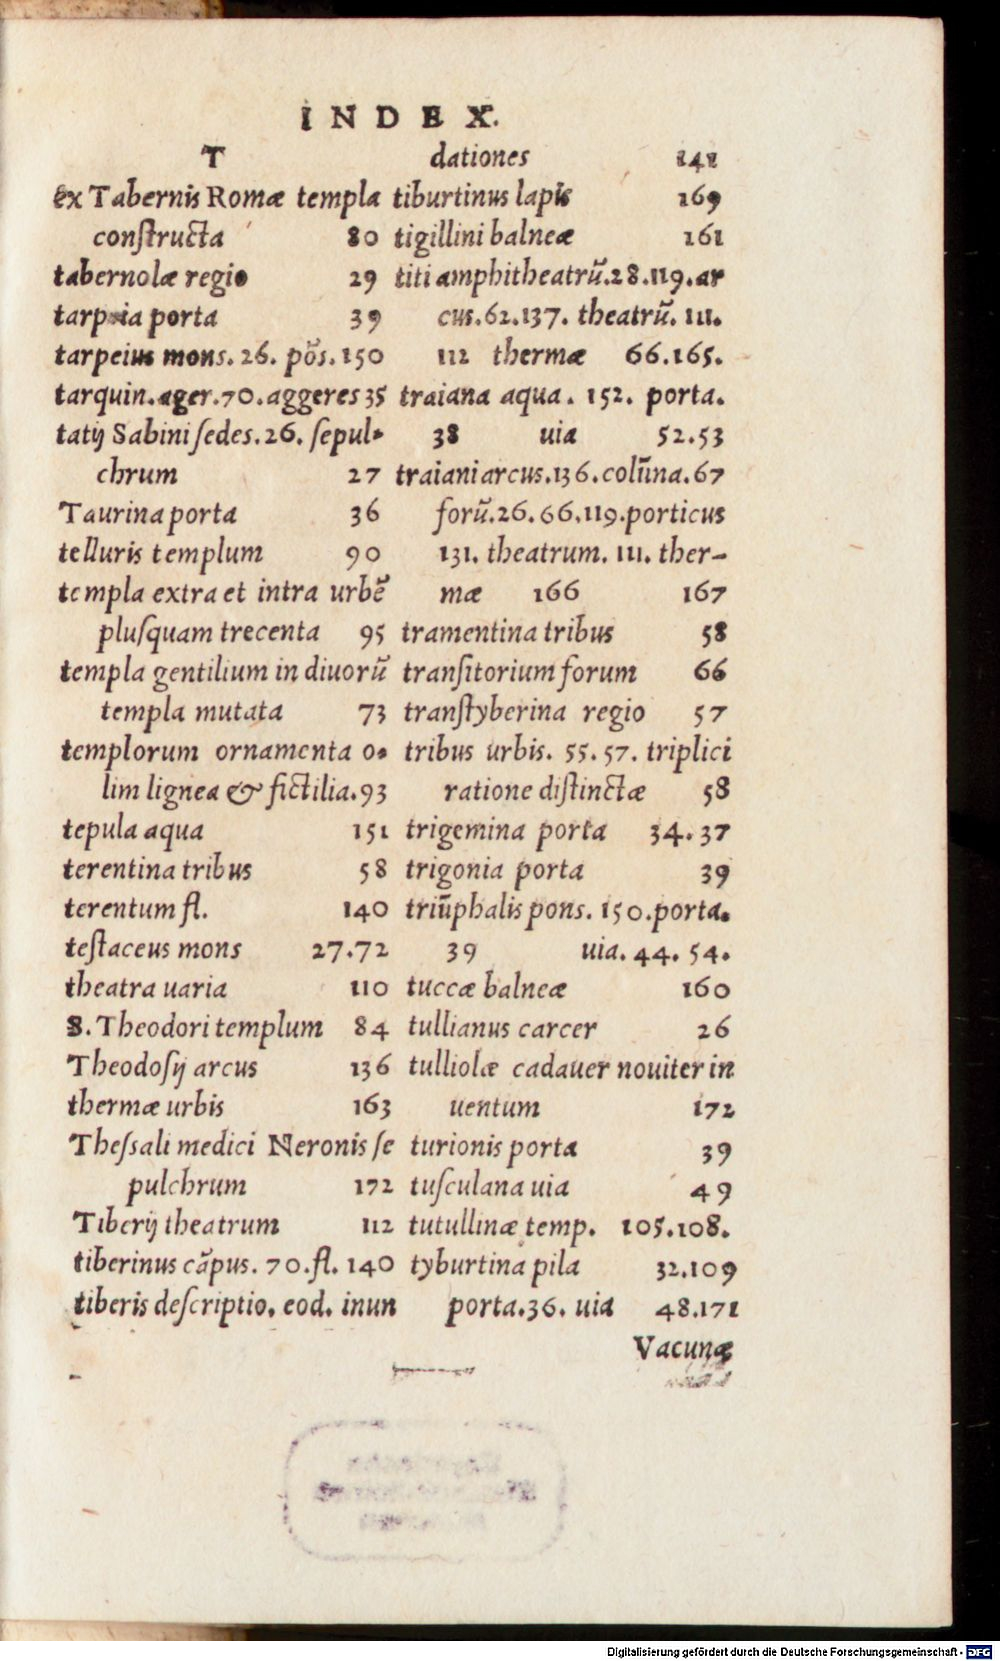 INDEX.
T
ex Tabernis Romæ templa
constructa 80
tabernolæ regio 29
tarpeia porta 39
tarpeius mons. 26. põs. 150
tarquin. ager. 70. aggeres 35
tatij Sabini sedes. 26. sepul-
chrum 27
Taurina porta 36
telluris templum 90
templa extra et intra urbẽ
plusquam trecenta 95
templa gentilium in diuorũ
templa mutata 73
templorum ornamenta o-
lim lignea & fictilia. 93
tepula aqua 151
terentina tribus 58
terentum fl. 140
testaceus mons 27.72
theatra uaria 110
S. Theodori templum 84
Theodosij arcus 136
thermæ urbis 163
Thessali medici Neronis se
pulchrum 172
Tiberij theatrum 112
tiberinus cãpus. 70. fl. 140
tiberis descriptio. eod. inun
dationes 141
tiburtinus lapis 169
tigillini balneæ 161
titi amphitheatrũ. 28. 119. ar
cus. 62. 137. theatrũ. 111.
112 thermæ 66.165.
traiana aqua. 152. porta.
38 uia 52.53
traiani arcus. 136. colũna. 67
forũ. 26. 66. 119. porticus
131. theatrum. 111. ther-
mæ 166 167
tramentina tribus 58
transitorium forum 66
transtyberina regio 57
tribus urbis. 55. 57. triplici
ratione distinctæ 58
trigemina porta 34. 37
trigonia porta 39
triũphalis pons. 150. porta.
39 uia. 44. 54.
tuccæ balneæ 160
tullianus carcer 26
tulliolæ cadauer nouiter in
uentum 172
turionis porta 39
tusculana uia 49
tutullinæ temp. 105.108.
tyburtina pila 32.109
porta. 36. uia 48.171
Vacunæ
Digitalisierung gefördert durch die Deutsche Forschungsgemeinschaft - DFG